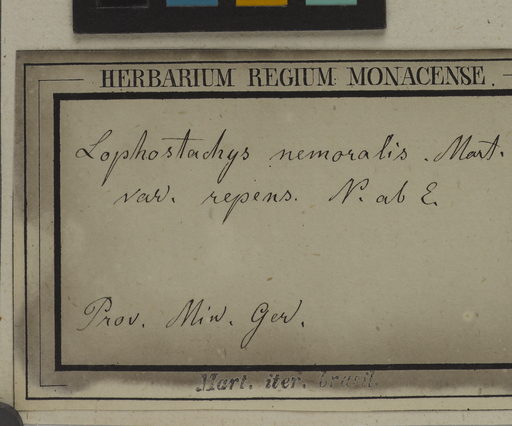 HERBARIUM REGIUM MONACENSE.
Lophostachys nemoralis. Mart.
var. repens. N. ab E.
Prov. Min. Ger.
Mart. iter. brasil.